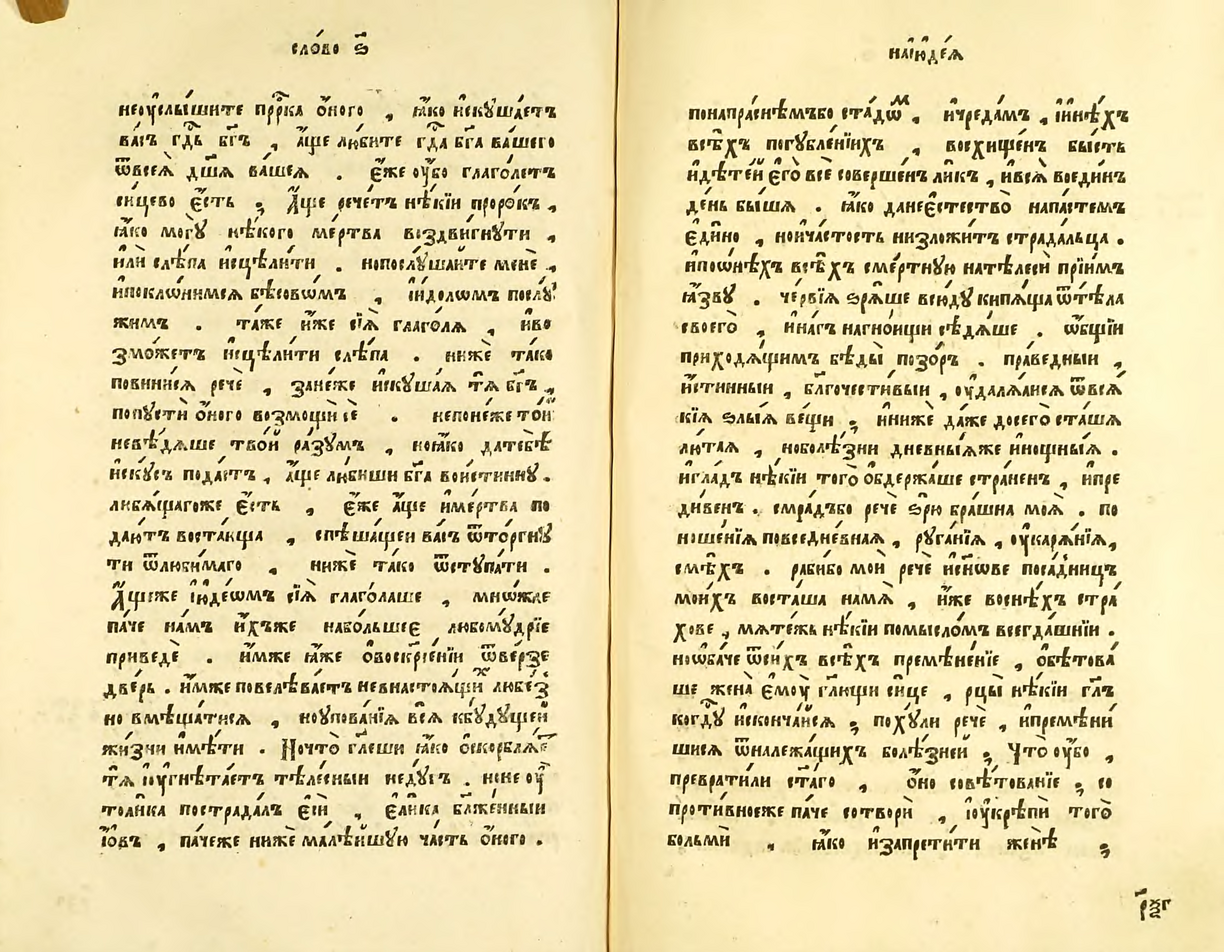 сло́во ѕ҃
неоуслы́шите прⷪ҇рка о́ного , ꙗ҆́ко и҆скꙋша́етъ
ва́съ гдⷭ҇ь бг҃ъ , а҆́ще лю́бите гдⷭ҇а бг҃а ва́шего
ѿвсеѧ̀ дш҃ѧ̀ ва́шеѧ . є҆́же оу҆́бо глаго́летъ
сицево є҆́сть ; А҆́ще рече́тъ нѣ́кїи проро́къ ,
ꙗ҆́ко могꙋ̀ нѣ́кого ме́ртва воздви́гнꙋти ,
и҆лѝ слѣ́па и҆сцѣли́ти . нопослꙋ́шаите менѐ ,
и҆поклѡни́мсѧ бѣсовѡмъ , и҆і҆́долѡмъ послꙋ́
жимъ . та́же и҆́же сїѧ̀ глаго́лѧ , и҆во
змо́жетъ и҆сцѣли́ти слѣ́па . нижѐ та́ко
повини́сѧ речѐ , зане́же и҆скꙋша́ѧ тѧ̀ бг҃ъ ,
попꙋстѝ о́ного возмощи сѐ . непоне́же то́и
невѣ́дѧше тво́и ра́зꙋмъ , ноꙗ҆́ко датебѣ̀
и҆скꙋ́съ пода́стъ , а҆́ще лю́биши бг҃а вои́стиннꙋ .
любѧ́щагоже є҆́сть , є҆́же а҆́ще и҆ме́ртва по
даю́тъ воста́вша , спѣша́щеи ва́съ ѿто́ргнꙋ
ти ѿлюби́маго , нижѐ та́ко ѿстꙋпа́ти .
А҆́щеже і҆ꙋде́ѡмъ сїѧ̀ глаго́лаше , мно́жае
па́че на́мъ и҆́хъже набо́льшеє любомꙋ́дрїе
приведѐ . и҆́мже ꙗ҆́же ѡ҆воскр҃се́нїи ѿве́рзе
две́рь . и҆́мже повелѣва́етъ невнастоѧ́щихъ лю́без
но вмѣща́тисѧ , ноупова́нїѧ всѧ̀ кбꙋ́дꙋщеи
жи́зни и҆мѣ́ти . Ночто̀ гл҃еши ꙗ҆́ко ѡ҆скорблѧ́е
тъ тѧ̀ і҆ꙋгнѣта́етъ тѣле́сныи недꙋ́гъ . нене оу҆
толи́ка пострада́лъ є҆сѝ , є҆ли́ка бл҃же́нныи
і҆́ѡвъ , па́чеже нижѐ малѣ́ишꙋю ча́сть о́ного .
наі҆ю҆де́ѧ
понапра́снѣмъбо ста́дѡⷨ , и҆чреда́мъ , і҆и҆нѣ́хъ
всѣ́хъ погꙋбле́нїихъ , восхище́нъ бы́сть
и҆дѣте́и є҆го̀ ве́се соверше́нъ ли́къ , и҆всѧ̀ воеди́нъ
де́нь бы́шѧ . ꙗ҆́ко данеє҆стество̀ напа́стемъ
є҆ди́но , нои҆ча́стость низложи́тъ страда́льца .
и҆поѡ҆нѣ́хъ всѣ́хъ сме́ртнꙋю натѣлесѝ прїи́мъ
ꙗ҆́звꙋ . че́рвїѧ ѕрѧ́ше всю́дꙋ кипѧ́ща ѿтѣ́ла
своего̀ , и҆на́гъ нагно́ищи сѣдѧ́ше . ѡ҆́бщїи
приходѧ́щимъ бѣды̀ позо́ръ . пра́ведныи ,
и҆́стинныи , бл҃гочести́выи , оу҆далѧ́аисѧ ѿвсѧ́
кїѧ ѕлы́ѧ ве́щи ; и҆нижѐ да́же досего̀ ста́шѧ
лю́таѧ , ноболѣ́зни дневны́ѧже и҆нощны́ѧ .
и҆гла́дъ нѣ́кїи того̀ ѡ҆держа́ше стра́ненъ , и҆пре
ди́венъ . смра́дъбо речѐ ѕрю̀ бра́шна моѧ̀ . по
ноше́нїѧ повседне́внаѧ , рꙋга́нїѧ , оу҆карѧ́нїѧ,
смѣ́хъ . раби́бо мои̑ речѐ и҆сн҃ѡве поса́дницъ
мои́хъ воста́ша намѧ̀ , и҆́же воснѣ́хъ стра́
хове , мѧте́жь нѣ́кїи по́мысломъ всегда́шнїи .
ноѡ҆ба́че ѿси́хъ всѣ́хъ премѣне́нїе , ѡ҆бѣтова́
ше жена̀ є҆моу̀ гл҃ющи си́це , рцы̀ нѣ́кїи гл҃ъ
когдⷭ҇ꙋ и҆сконча́исѧ ; похꙋлѝ речѐ , и҆премѣнѝ
шисѧ ѿналежа́щихъ болѣ́знеи ; Что̀ оу҆́бо ,
преврати́ли ст҃а́го , ѻ҆́но совѣ́тованїе ; со
проти́вноеже па́че сотворѝ , і҆оу҆крѣпѝ того̀
бо́льми , ꙗ҆́ко и҆запрети́ти женѣ̀ ;
рѯ҃г